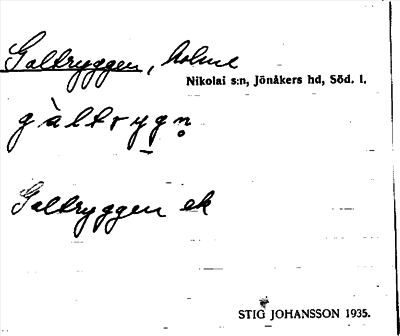 Galtryggen, holme
Nikolai s:n, Jönåkers hd, Söd. l.
gàltrygn̥
Galtryggen ek
STIG JOHANSSON 1935.